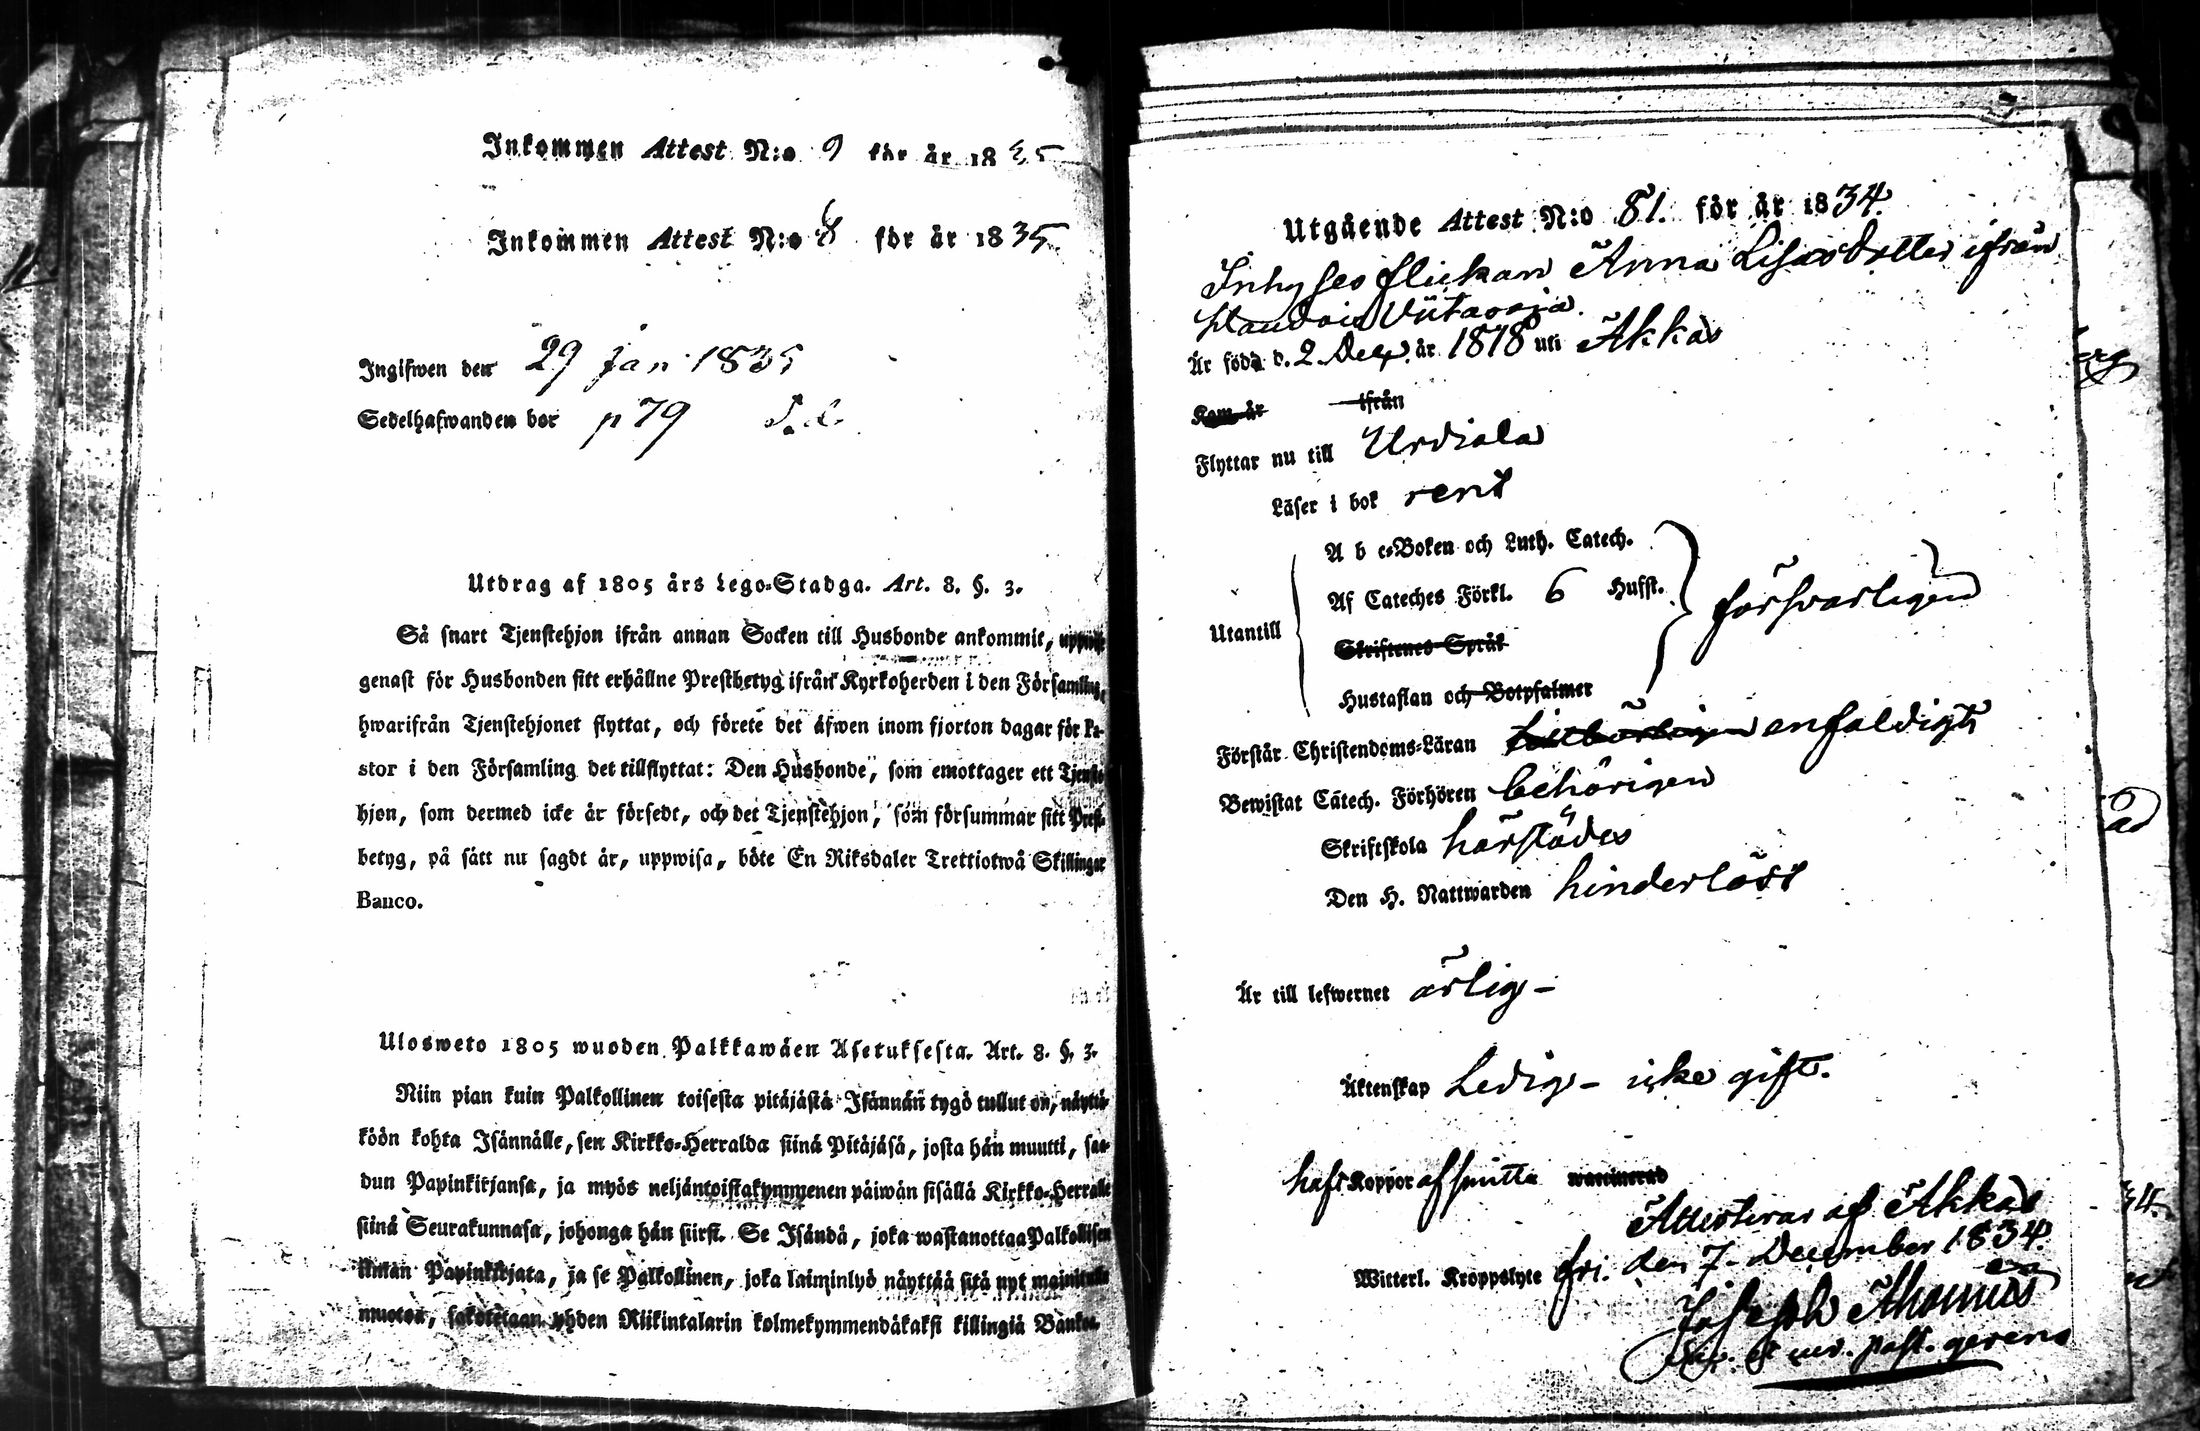 Inkommen Attest N:o 9 för år 1835
Inkommen Attest N:o 8 för år 1835
Ingifwen den 29 jan 1835
Sedelhafwanden bor p 79
Utdrag af 1805 års Lego-Stadga. Art. 8. §. 3.
Så snart Tjenstehjon ifrån annan Socken till Husbonde ankommit,
genast för Husbonden sitt erhållne Prestbetyg ifrån Kyrkoherden i den Församling,
hwarifrån Tjenstehjonet flyttat, och förete det äfwen inom fjorton dagar för Pa-
stor i den Församling det tillflyttat: Den Husbonde, som emottager ett Tjenste-
hjon, som dermed icke är försedt, och det Tjenstehjon, som försummar sitt Prest-
betyg, på sätt nu sagdt är, uppwisa, böte En Riksdaler Trettiotwå Skillingar
Banco.
Ulosweto 1805 wuoden Palkkawäen Asetuksesta. Art. 8. §. 3.
Niin pian kuin Palkollinen toisesta pitäjästä Isännän tygö tullut on, näyttä-
köön kohta Isännälle, sen Kirkko-Herralda siinä Pitäjäsä, josta hän muutti, saa-
dun Papinkirjansa, ja myös neljäntoistakymmenen päiwän sisällä Kirkko-Herralle
siinä Seurakunnasa, johonga hän siirsi. Se Isändä, joka wastanottaa Palkollisen
ilman Papinkirjata, ja se Palkollinen, joka laiminlyö näyttää sitä nyt mainitulla
muotoa, sakotetaan yhden Riikintalarin kolmekymmendäkaksi killingiä Bankos.
Utgående Attest N:o 81. för år 1834.
Inhyses flickan Anna Lisa Dotter ifrån
Viitaoja.
Är född d. 2 Dec. år 1818 uti Akkas
Kom år ifrån
Flyttar nu till Urdiala
Läser i bok rent
A b c-Boken och Luth. Catech.
Af Cateches Förkl. 6 Hufst.
Utantill försvarligen
Skriftenes Språk
Hustaflan och Botpsalmer
Förstår Christendoms-Läran enfaldigt
Bewistat Catech. Förhören behörigen
Skriftskola härstädes
Den H. Nattwarden hinderlöst
Är till lefwernet ärlig –
Äktenskap Ledig – icke gift.
haft Koppor afsmitta waccinerad
Attesterar af Akkas
den 7. December 1834.
Witterl. Kroppslyte fri.
Joseph
past. gerens